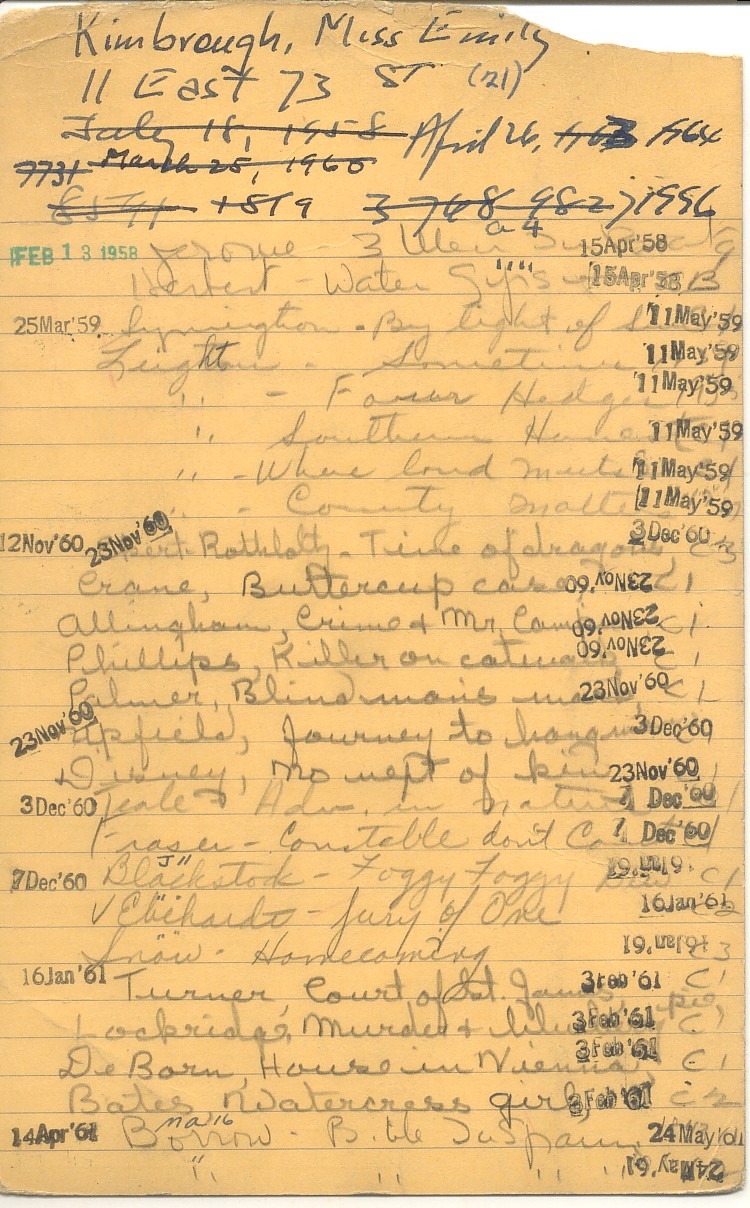 Kimbrough, Miss Emily
11 East 73 ST (21)
July 18, 1958 April 26, 1963 1964
7731 March 25, 1960
8571 +819 3 768 982 71996
a 4
FEB 13 1958 Jerome - 3 Men 15Apr'58
Herbert - Water Gypsies 15Apr'58 B
25Mar'59 Symington - By light of 11May'59
Leighton - Sometime 11May'59
" - Four Hedges 11May'59
" Southern Harvest 11May'59
" - Where land meets 11May'59
" - County matters 11May'59
12Nov'60 23Nov'60 Rothblatt - Time of dragons 3Dec'60 C3
Crane, Buttercup case 23Nov'60 C1
Allingham, Crime & Mr. Camp 23Nov'60 C1
Phillips, Killer on catwalk 23Nov'60 C1
Palmer, Blind man's 23Nov'60 C1
23Nov'60 Upfield, Journey to hang 3Dec'60 C1
Disney, No next of kin 23Nov'60
3Dec'60 Teale - Adv. in nature 7 Dec'60
Fraser - Constable don't Count 7 Dec'60
7Dec'60 Blackstock - Foggy Foggy Dew 16Jan'61 C1
√ Eberhardt - Jury of One 16Jan'61 C2
Snow - Homecoming 16Jan'61 C3
16Jan'61 Turner, Court of St. James 3Feb'61 C1
Lockridge, Murder & 3Feb'61 C1
De Born, House in Vienna, 3Feb'61 C1
Bates, Watercress girl 3Feb'61 C2
14Apr'61 Borrow - Bible in Spain 24May'61
" " " 24May'61